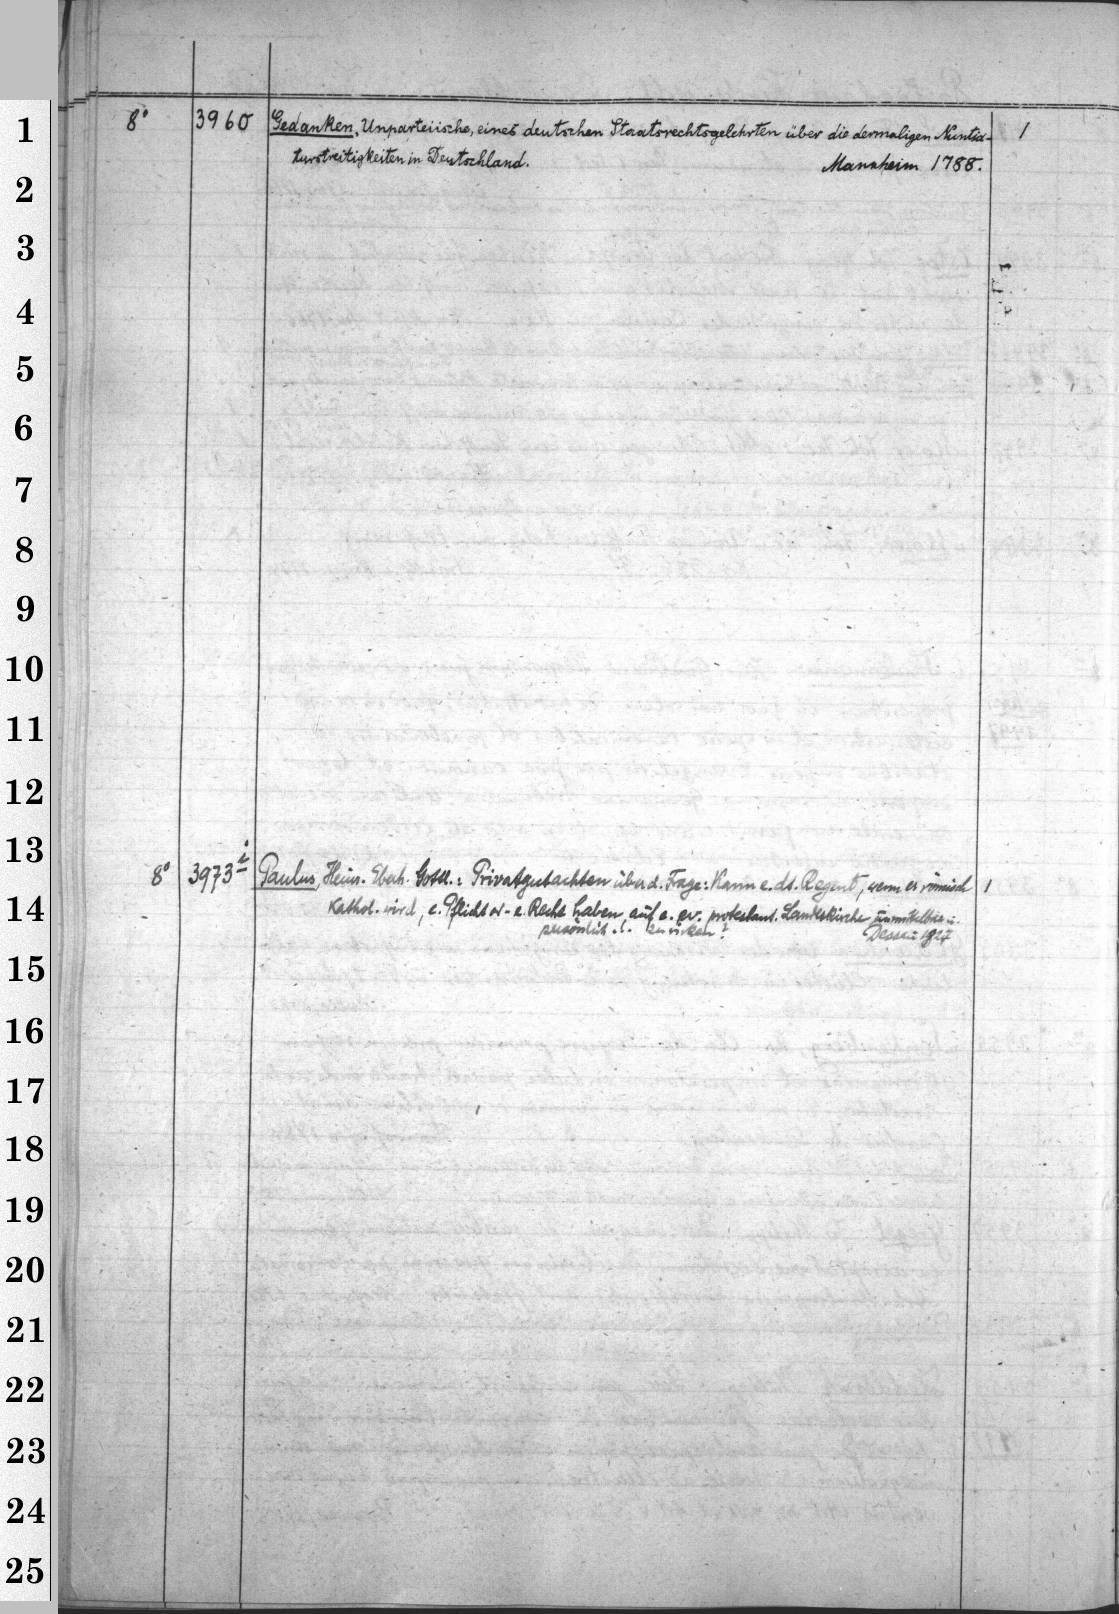 8° 3960 Gedanken, Unparteiische, eines deutschen Staatsrechtsgelehrten über die dermaligen Nuntia- 1
turstreitigkeiten in Deutschland. Mannheim 1788.
8° 3973 i Paulus, Heinr. Eberh. Gottl.: Privatgutachten über d. Frage: Kann e. dt. Regent, wenn er römisch 1
Kathol. wird, e. Pflicht od. e. Recht haben, auf e. ev. protestant. Landeskirche unmittelbar u.
persönlich zu wirken? Dessau 1827
1
2
3
4
5
6
7
8
9
10
11
12
13
14
15
16
17
18
19
20
21
22
23
24
25